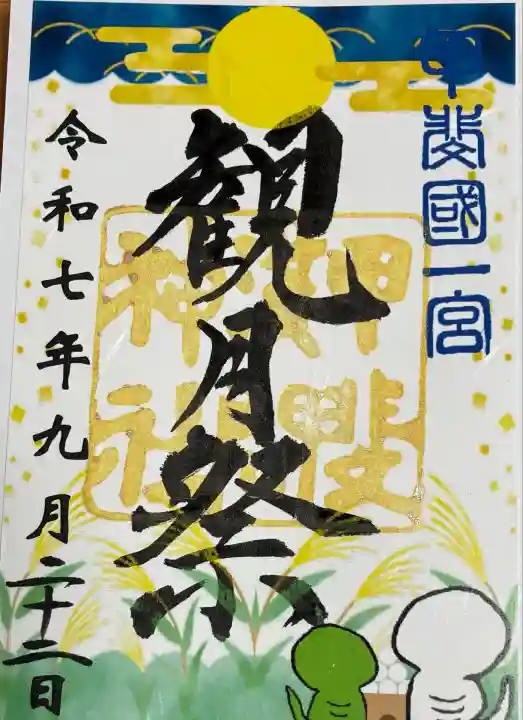 甲斐國一宮
観月祭
甲斐
神社
令和七年九月二十二日